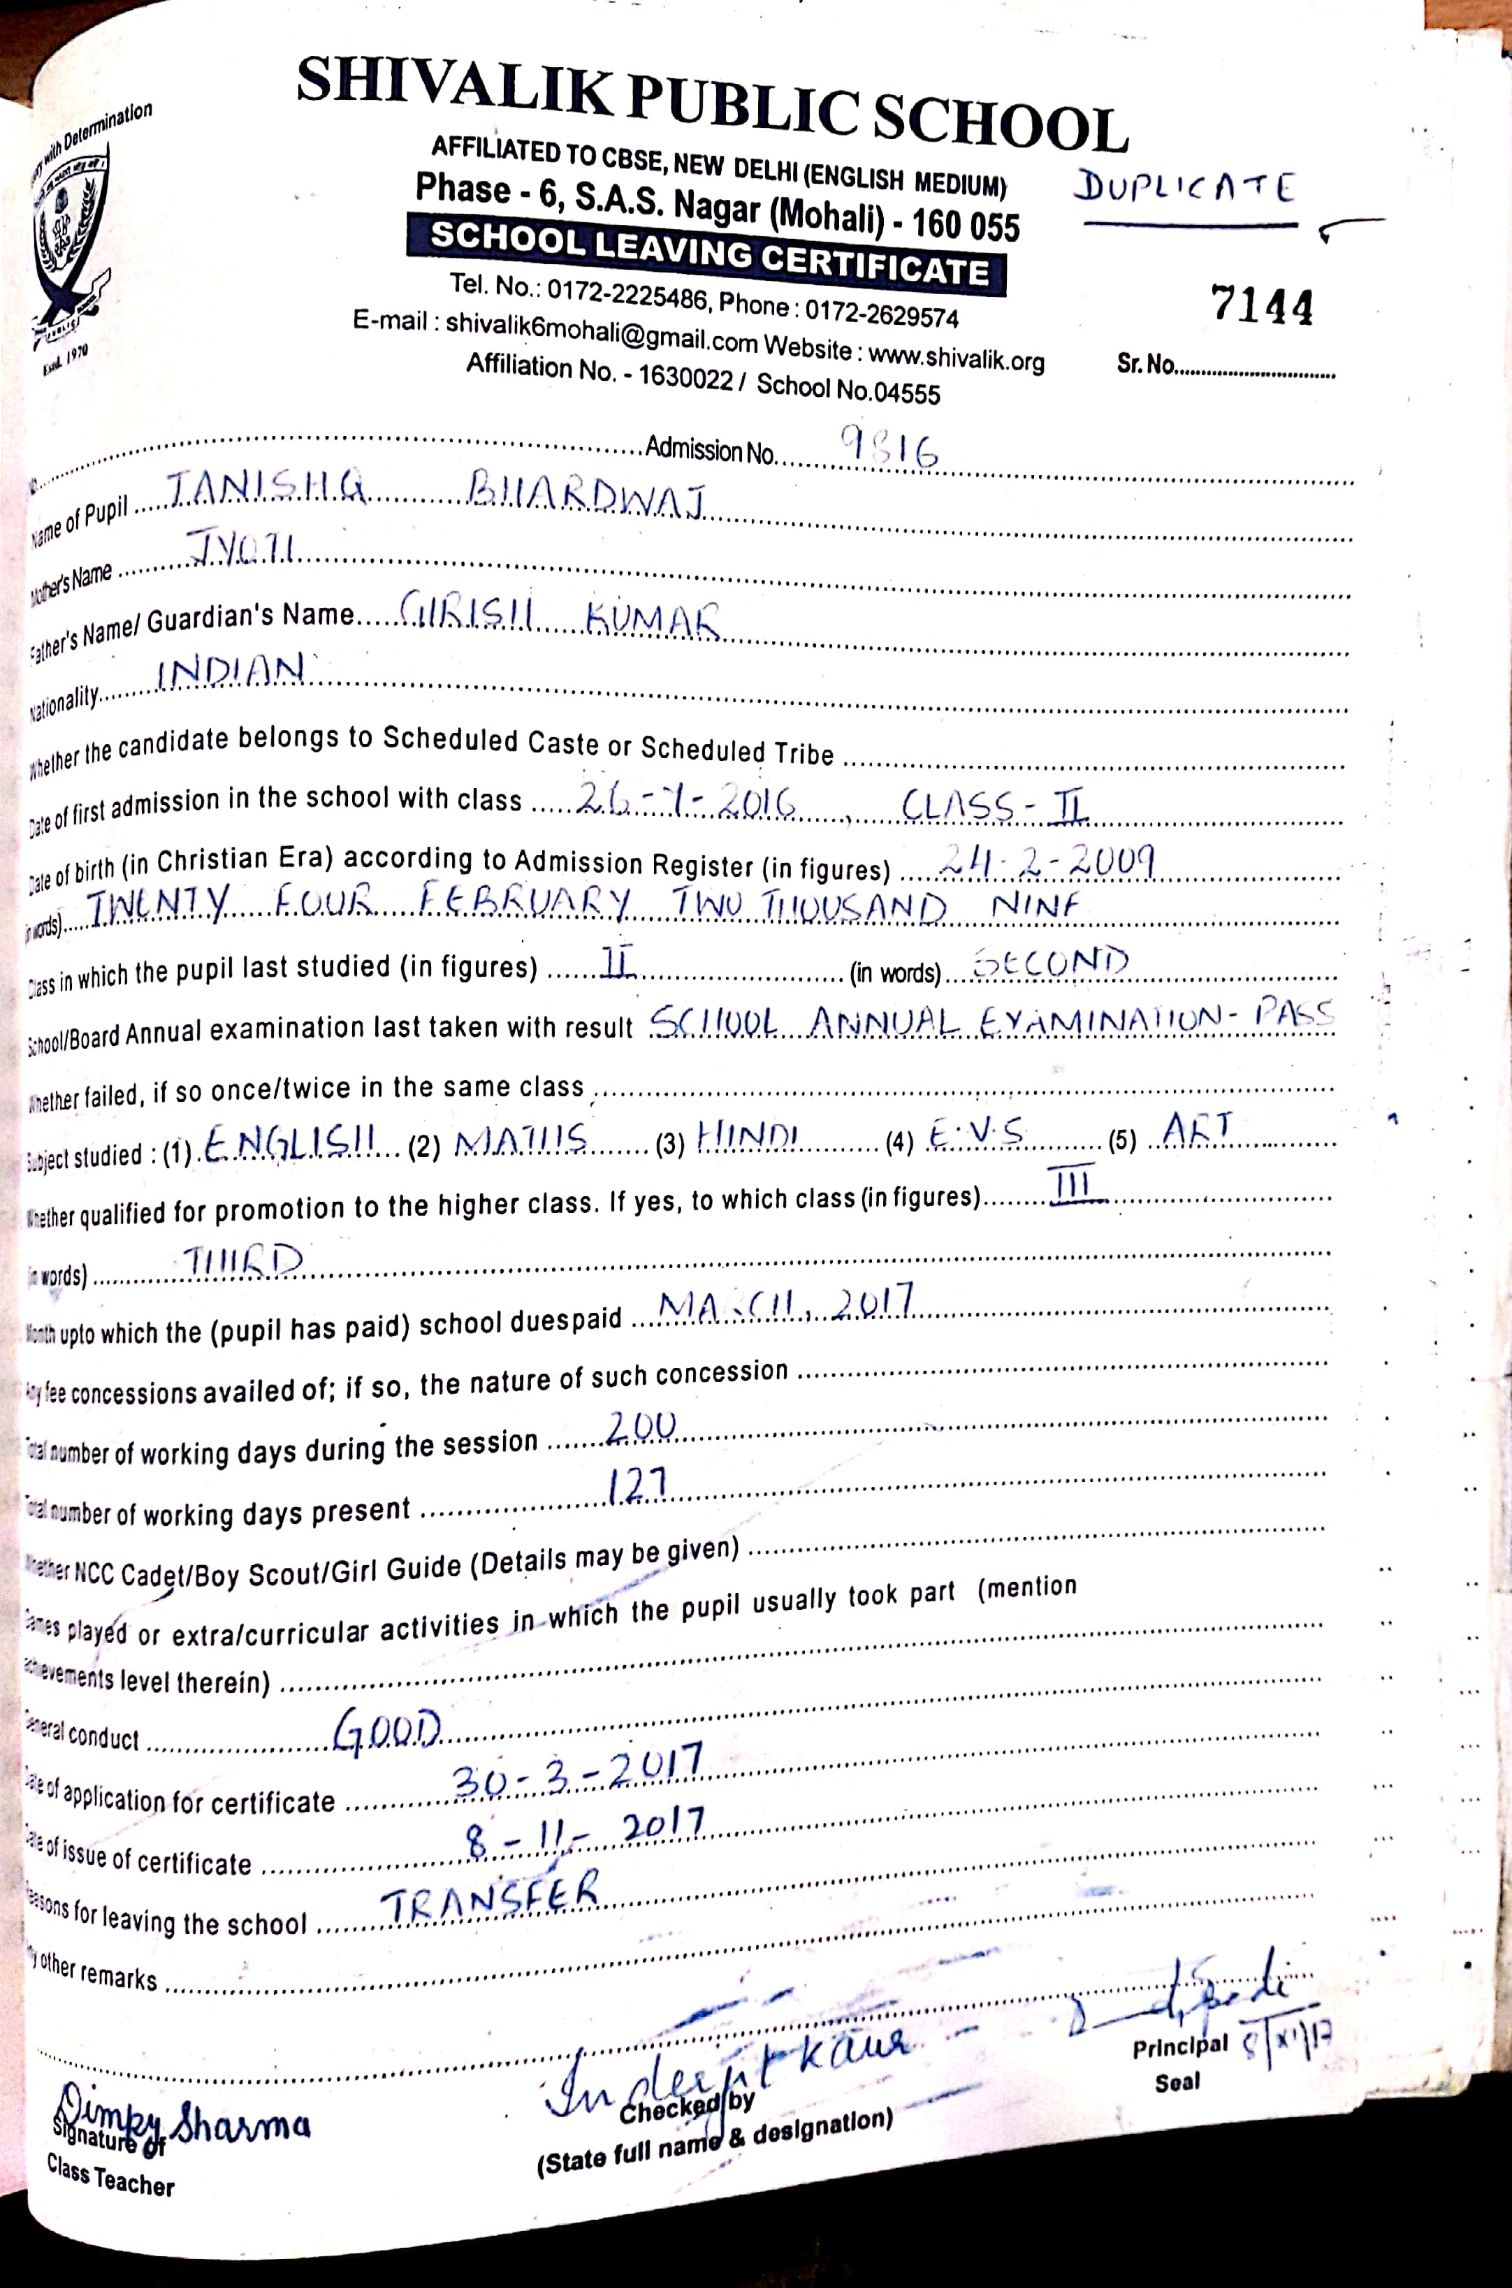 SHIVALIK PUBLIC SCHOOL
with Determination
AFFILIATED TO CBSE, NEW DELHI (ENGLISH MEDIUM)
DUPLICATE
Phase - 6, S.A.S. Nagar (Mohali) - 160 055
SCHOOL LEAVING CERTIFICATE
Tel. No.: 0172-2225486, Phone : 0172-2629574
7144
E-mail : shivalik6mohali@gmail.com Website : www.shivalik.org
Estd. 1970
Sr. No.
Affiliation No. - 1630022 / School No.04555
Admission No. 9816
Name of Pupil TANISHQ BHARDWAJ
Mother's Name JYOTI
Father's Name/ Guardian's Name GIRISH KUMAR
Nationality INDIAN
Whether the candidate belongs to Scheduled Caste or Scheduled Tribe
Date of first admission in the school with class 26-7-2016, CLASS-II
Date of birth (in Christian Era) according to Admission Register (in figures) 24-2-2009
(in words) TWENTY FOUR FEBRUARY TWO THOUSAND NINE
Class in which the pupil last studied (in figures) II (in words) SECOND
School/Board Annual examination last taken with result SCHOOL ANNUAL EXAMINATION- PASS
Whether failed, if so once/twice in the same class
Subject studied : (1) ENGLISH (2) MATHS (3) HINDI (4) E.V.S (5) ART
Whether qualified for promotion to the higher class. If yes, to which class (in figures) III
(in words) THIRD
Month upto which the (pupil has paid) school duespaid MARCH, 2017
Any fee concessions availed of; if so, the nature of such concession
Total number of working days during the session 200
Total number of working days present 127
Whether NCC Cadet/Boy Scout/Girl Guide (Details may be given)
Games played or extra/curricular activities in which the pupil usually took part (mention
achievements level therein)
General conduct GOOD
Date of application for certificate 30-3-2017
Date of issue of certificate 8-11-2017
Reasons for leaving the school TRANSFER
Any other remarks
Principal 8/XI/17
Seal
Inderjit Kaur
Checked by
(State full name & designation)
Dimpy Sharma
Signature of
Class Teacher